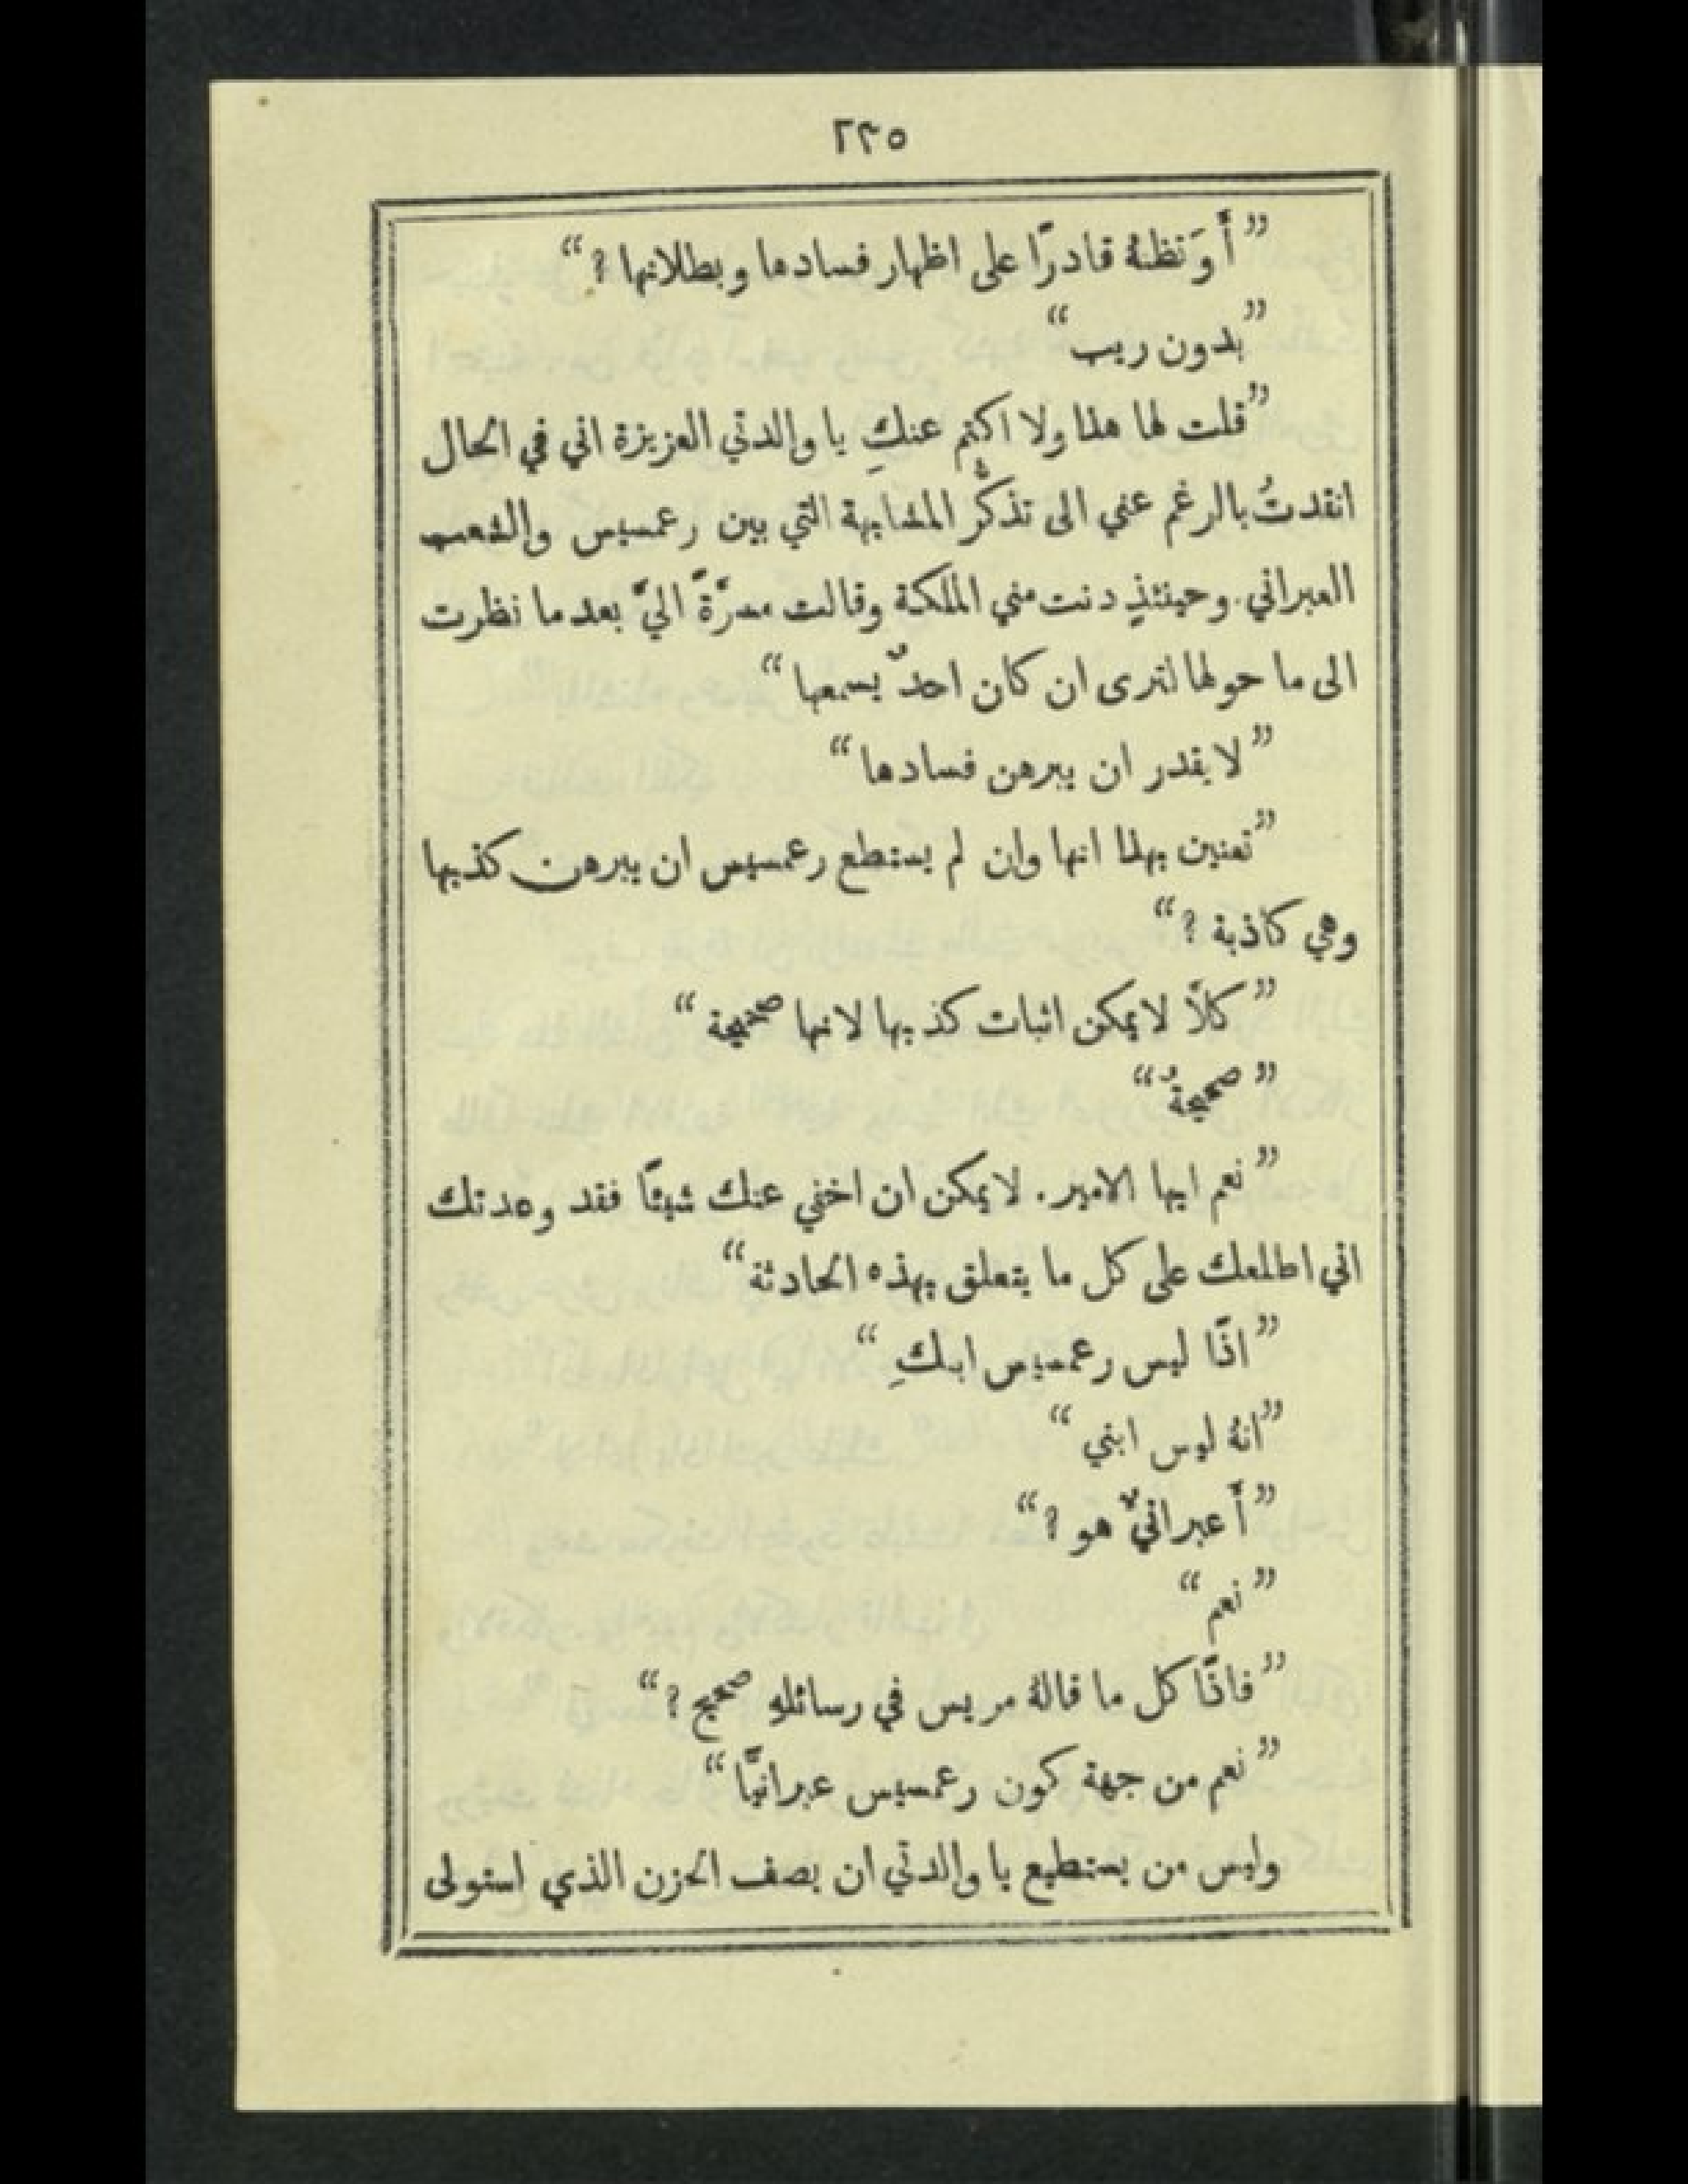 ٢٢٥
”أَوَتظنهُ قادرًا على اظهار فسادها وبطلانها ?“
”بدون ريب“
”قلت لها هذا ولا اكتم عنكِ يا والدتي العزيزة اني في الحال
انقدتُ بالرغم عني الى تذكُّر المشابهة التي بين رعمسيس والشعب
العبراني. وحينئذٍ دنت مني الملكة وقالت مسرَّةً اليَّ بعد ما نظرت
الى ما حولها لترى ان كان احدٌ يسمعها“
”لا يقدر ان يبرهن فسادها“
”تعنين بهذا انها وان لم يستطع رعمسيس ان يبرهن كذبها
وهي كاذبة ?“
”كلَّا لا يمكن اثبات كذبها لانها صحيحة“
”صحيحةٌ“
”نعم ايها الامير. لا يمكن ان اخفي عنك شيئًا فقد وعدتك
اني اطلعك على كل ما يتعلق بهذه الحادثة“
”اذًا ليس رعمسيس ابنكِ“
”انهُ ليس ابني“
”أَعبرانيٌّ هو ?“
”نعم“
”فاذًا كل ما قالهُ مريس في رسائلهِ صحيح ?“
”نعم من جهة كون رعمسيس عبرانيًّا“
وليس من يستطيع يا والدتي ان يصف الحزن الذي استولى